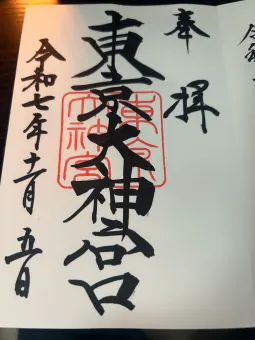 奉拝
東京大神宮
令和七年十一月五日
東京
大神宮
令和